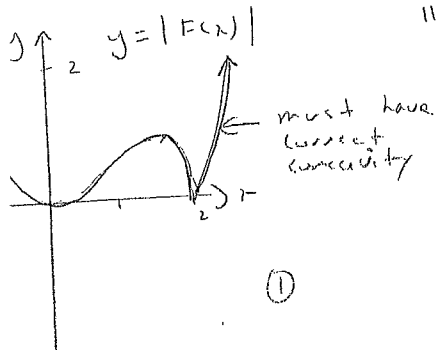 11
y = | F(x) |
y
2
must have
correct
concavity
2
x
①